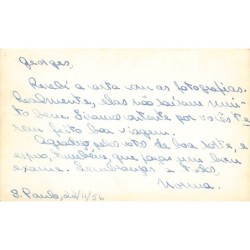 Georges,
Recebi a carta com as fotografias.
Realmente, elas não saíram mui-
to bem. Estamos contente por vocês te-
rem feito boa viagem.
Agradeço pelos voto de boa sorte, e
espero, também, que faças um bom
exame. Lembranças a todos,
Norma.
S. Paulo, 22/11/56